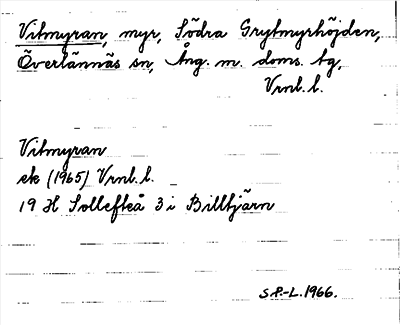 Vitmyran, myr, Södra Grytmyrhöjden,
Överlännäs sn, Ång. m. doms. tg,
Vrnl. l.
Vitmyran
ek (1965) Vrnl. l.
19 H Sollefteå 3 i Billtjärn
S.P.-L. 1966.